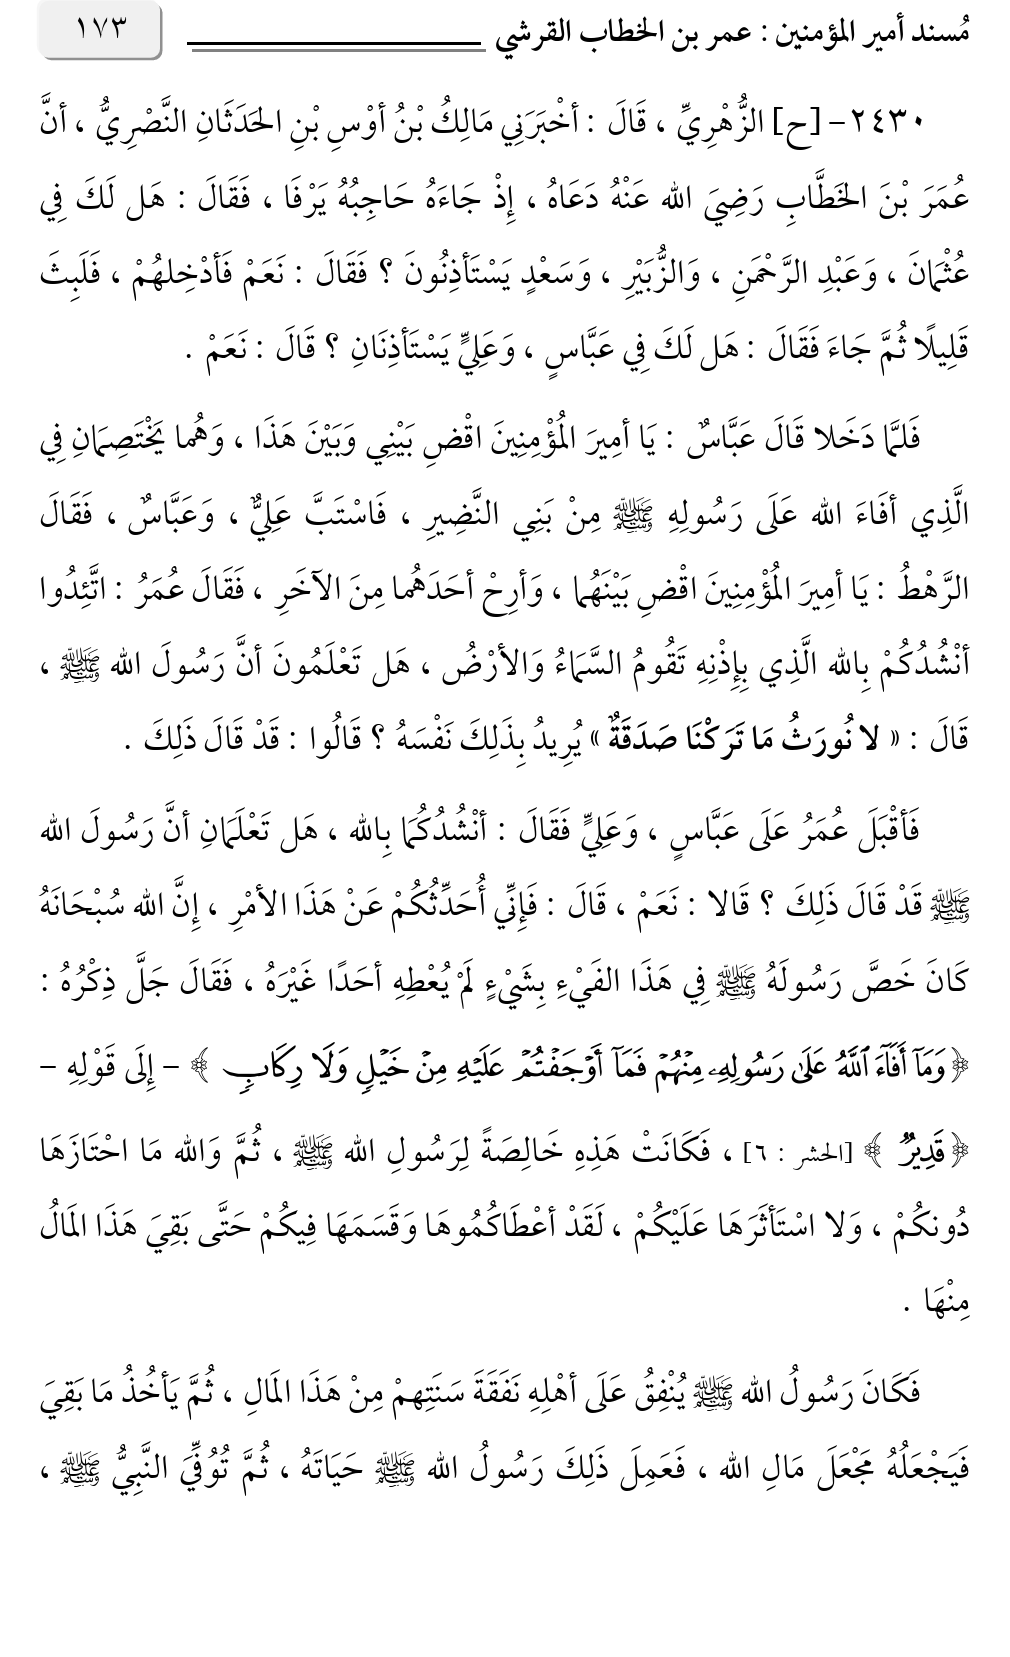 مُسند أمير المؤمنين : عمر بن الخطاب القرشي
١٧٣
٢٤٣٠- [ح] الزُّهْرِيِّ ، قَالَ : أخْبَرَنِي مَالِكُ بْنُ أوْسِ بْنِ الحَدَثَانِ النَّصْرِيُّ ، أنَّ
عُمَرَ بْنَ الخَطَّابِ رَضِيَ الله عَنْهُ دَعَاهُ ، إِذْ جَاءَهُ حَاجِبُهُ يَرْفَا ، فَقَالَ : هَل لَكَ فِي
عُثْمَانَ ، وَعَبْدِ الرَّحْمَنِ ، وَالزُّبَيْرِ ، وَسَعْدٍ يَسْتَأذِنُونَ ؟ فَقَالَ : نَعَمْ فَأدْخِلهُمْ ، فَلَبِثَ
قَلِيلًا ثُمَّ جَاءَ فَقَالَ : هَل لَكَ فِي عَبَّاسٍ ، وَعَلِيٍّ يَسْتَأذِنَانِ ؟ قَالَ : نَعَمْ .
فَلمَّا دَخَلا قَالَ عَبَّاسٌ : يَا أمِيرَ المُؤْمِنِينَ اقْضِ بَيْنِي وَبَيْنَ هَذَا ، وَهُما يَخْتَصِمَانِ فِي
الَّذِي أفَاءَ الله عَلَى رَسُولِهِ ﷺ مِنْ بَنِي النَّضِيرِ ، فَاسْتَبَّ عَلِيٌّ ، وَعَبَّاسٌ ، فَقَالَ
الرَّهْطُ : يَا أمِيرَ المُؤْمِنِينَ اقْضِ بَيْنَهُما ، وَأرِحْ أحَدَهُما مِنَ الآخَرِ ، فَقَالَ عُمَرُ : اتَّئِدُوا
أنْشُدُكُمْ بِالله الَّذِي بِإِذْنِهِ تَقُومُ السَّمَاءُ وَالأرْضُ ، هَل تَعْلَمُونَ أنَّ رَسُولَ الله ﷺ ،
قَالَ : « لا نُورَثُ مَا تَرَكْنَا صَدَقَةٌ » يُرِيدُ بِذَلِكَ نَفْسَهُ ؟ قَالُوا : قَدْ قَالَ ذَلِكَ .
فَأقْبَلَ عُمَرُ عَلَى عَبَّاسٍ ، وَعَلِيٍّ فَقَالَ : أنْشُدُكُمَا بِالله ، هَل تَعْلَمَانِ أنَّ رَسُولَ الله
ﷺ قَدْ قَالَ ذَلِكَ ؟ قَالا : نَعَمْ ، قَالَ : فَإِنِّي أُحَدِّثُكُمْ عَنْ هَذَا الأمْرِ ، إِنَّ الله سُبْحَانَهُ
كَانَ خَصَّ رَسُولَهُ ﷺ فِي هَذَا الفَيْءِ بِشَيْءٍ لَمْ يُعْطِهِ أحَدًا غَيْرَهُ ، فَقَالَ جَلَّ ذِكْرُهُ :
﴿وَمَآ أَفَآءَ ٱللَّهُ عَلَىٰ رَسُولِهِۦ مِنۡهُمۡ فَمَآ أَوۡجَفۡتُمۡ عَلَيۡهِ مِنۡ خَيۡلٖ وَلَا رِكَابٖ ﴾ - إِلَى قَوْلِهِ -
﴿قَدِيرٞ ﴾ [الحشر : ٦] ، فَكَانَتْ هَذِهِ خَالِصَةً لِرَسُولِ الله ﷺ ، ثُمَّ وَالله مَا احْتَازَهَا
دُونكُمْ ، وَلا اسْتَأثَرَهَا عَلَيْكُمْ ، لَقَدْ أعْطَاكُمُوهَا وَقَسَمَهَا فِيكُمْ حَتَّى بَقِيَ هَذَا المَالُ
مِنْهَا .
فَكَانَ رَسُولُ الله ﷺ يُنْفِقُ عَلَى أهْلِهِ نَفَقَةَ سَنَتِهمْ مِنْ هَذَا المَالِ ، ثُمَّ يَأخُذُ مَا بَقِيَ
فَيَجْعَلُهُ مَجْعَلَ مَالِ الله ، فَعَمِلَ ذَلِكَ رَسُولُ الله ﷺ حَيَاتَهُ ، ثُمَّ تُوُفِّيَ النَّبِيُّ ﷺ ،